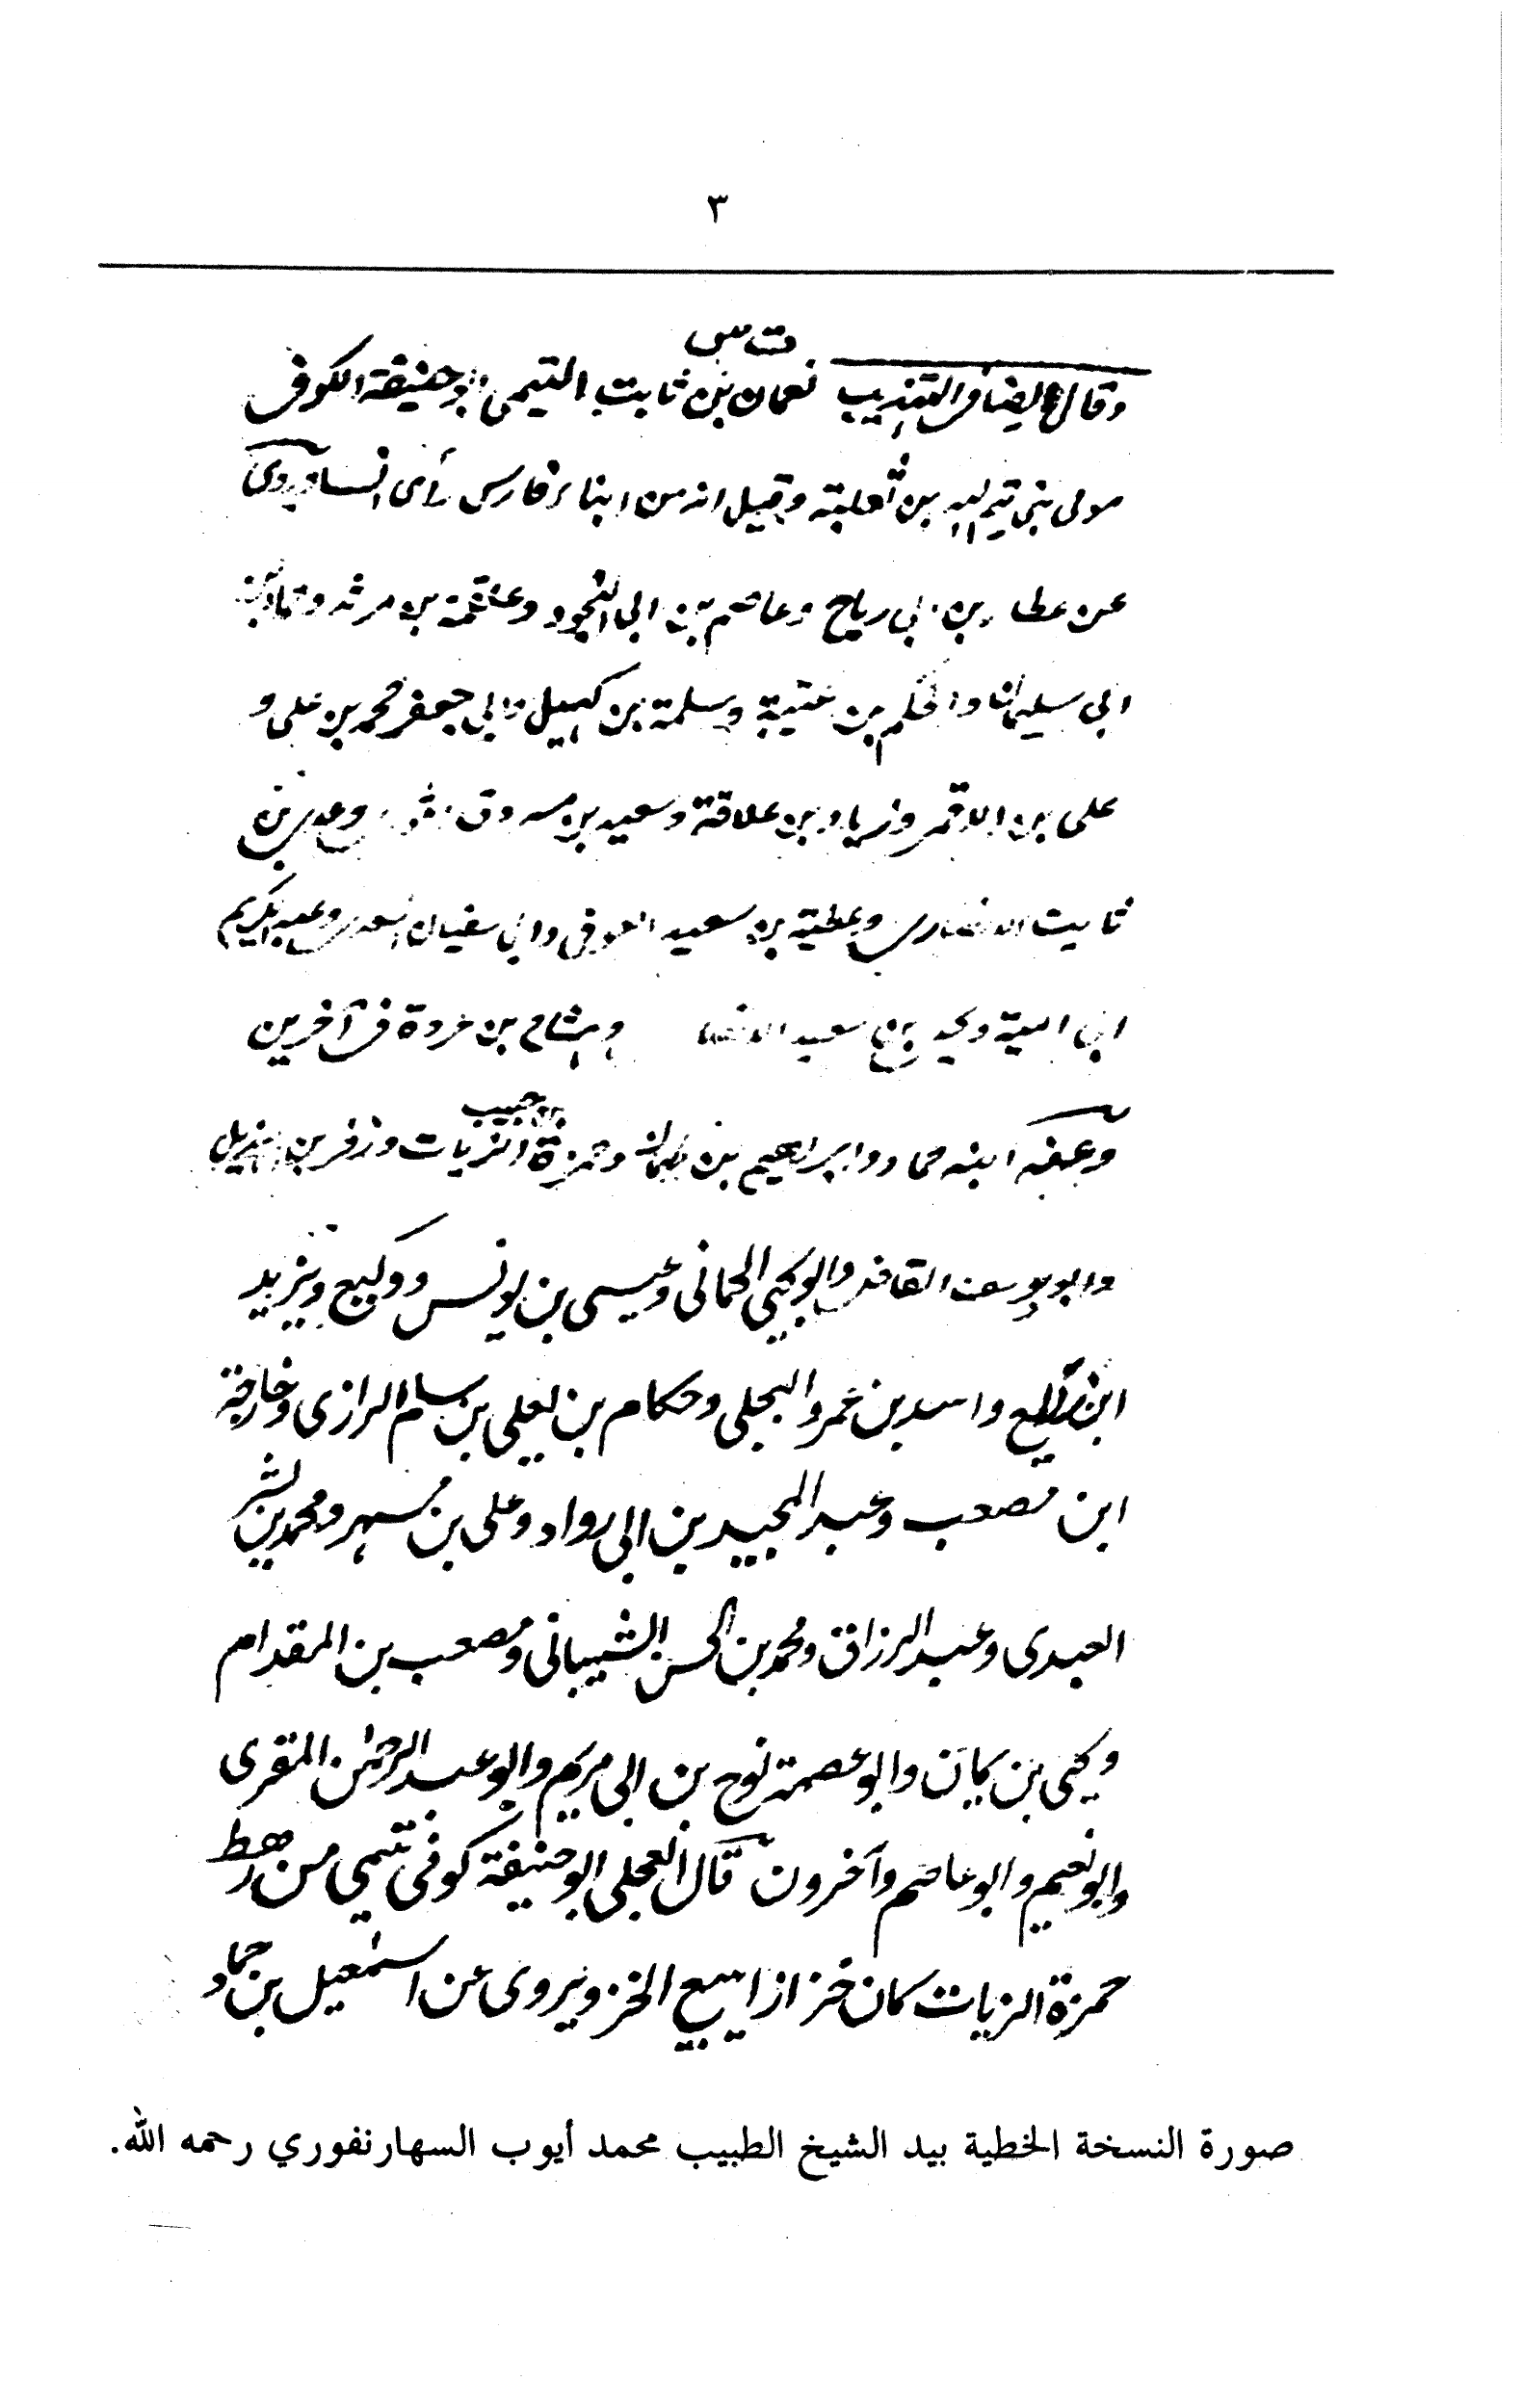 ٣
ت س
وقال ايضا في التهذيب نعمان بن ثابت التيمي ابو حنيفة الكوفي
مولى بني تيم الله بن ثعلبة وقيل انه من ابناء فارس رأى انسا وروى
عن عطاء بن ابي رباح وعاصم بن ابي النجود وعلقمة بن مرثد وحماد بن
ابي سليمان والحكم بن عتيبة وسلمة بن كهيل وابي جعفر محمد بن علي و
علي بن الاقمر وزياد بن علاقة وسعيد بن مسروق الثوري وعدي بن
ثابت الانصاري وعطية بن سعيد العوفي وابي سفيان السعدي وعبد الكريم
ابي امية ويحيى بن سعيد الانصا وهشام بن عروة في آخرين
بن حبيب
وعنه ابنه حماد وابراهيم بن طهمان وحمزة الزيات وزفر بن الهذيل
وابو يوسف القاضي وابو يحيى الحماني وعيسى بن يونس ووكيع ويزيد
ابن زريع واسد بن عمرو البجلي وحكام بن يعلى بن سلم الرازي وخارجة
ابن مصعب وعبد المجيد بن ابي رواد وعلي بن مسهر ومحمد بن بشر
العبدي وعبد الرزاق ومحمد بن الحسن الشيباني ومصعب بن المقدام
ويحيى بن يمان وابو عصمة نوح بن ابي مريم وابو عبد الرحمن المقري
وابو نعيم وابو عاصم وآخرون قال العجلي ابو حنيفة كوفي تيمي من رهط
حمزة الزيات كان خزازا يبيع الخز ويروى عن اسمعيل بن حماد
صورة النسخة الخطية بيد الشيخ الطبيب محمد أيوب السهارنفوري رحمه الله.